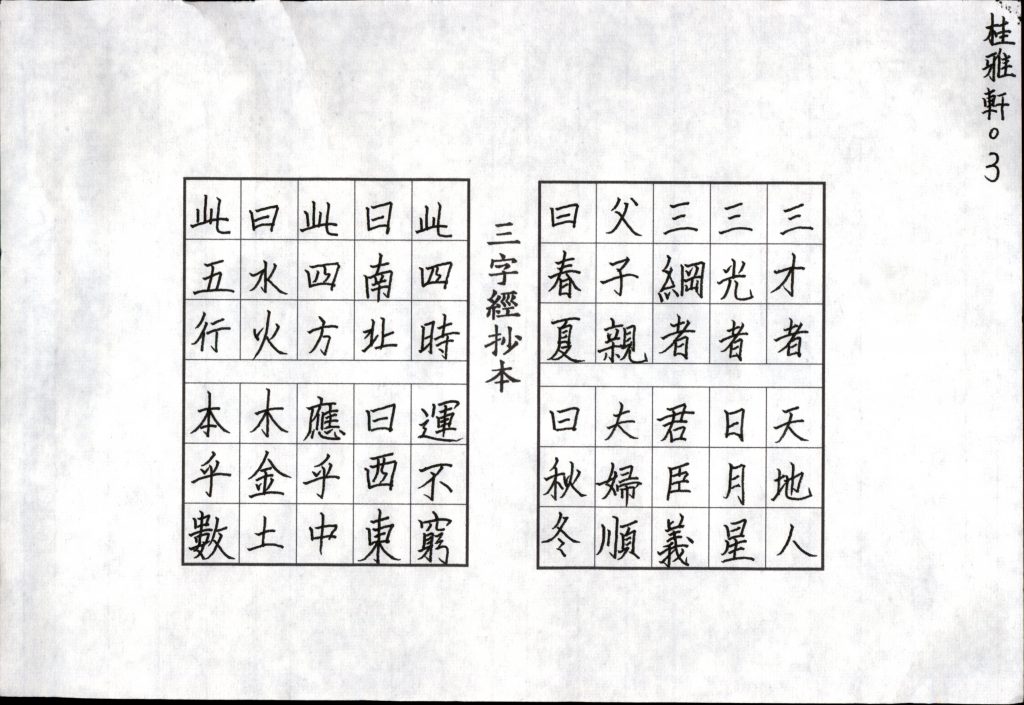 桂雅軒。3
三才者天地人
三光者日月星
三綱者君臣義
父子親夫婦順
曰春夏曰秋冬
三字經抄本
此四時運不窮
曰南北曰西東
此四方應乎中
曰水火木金土
此五行本乎數